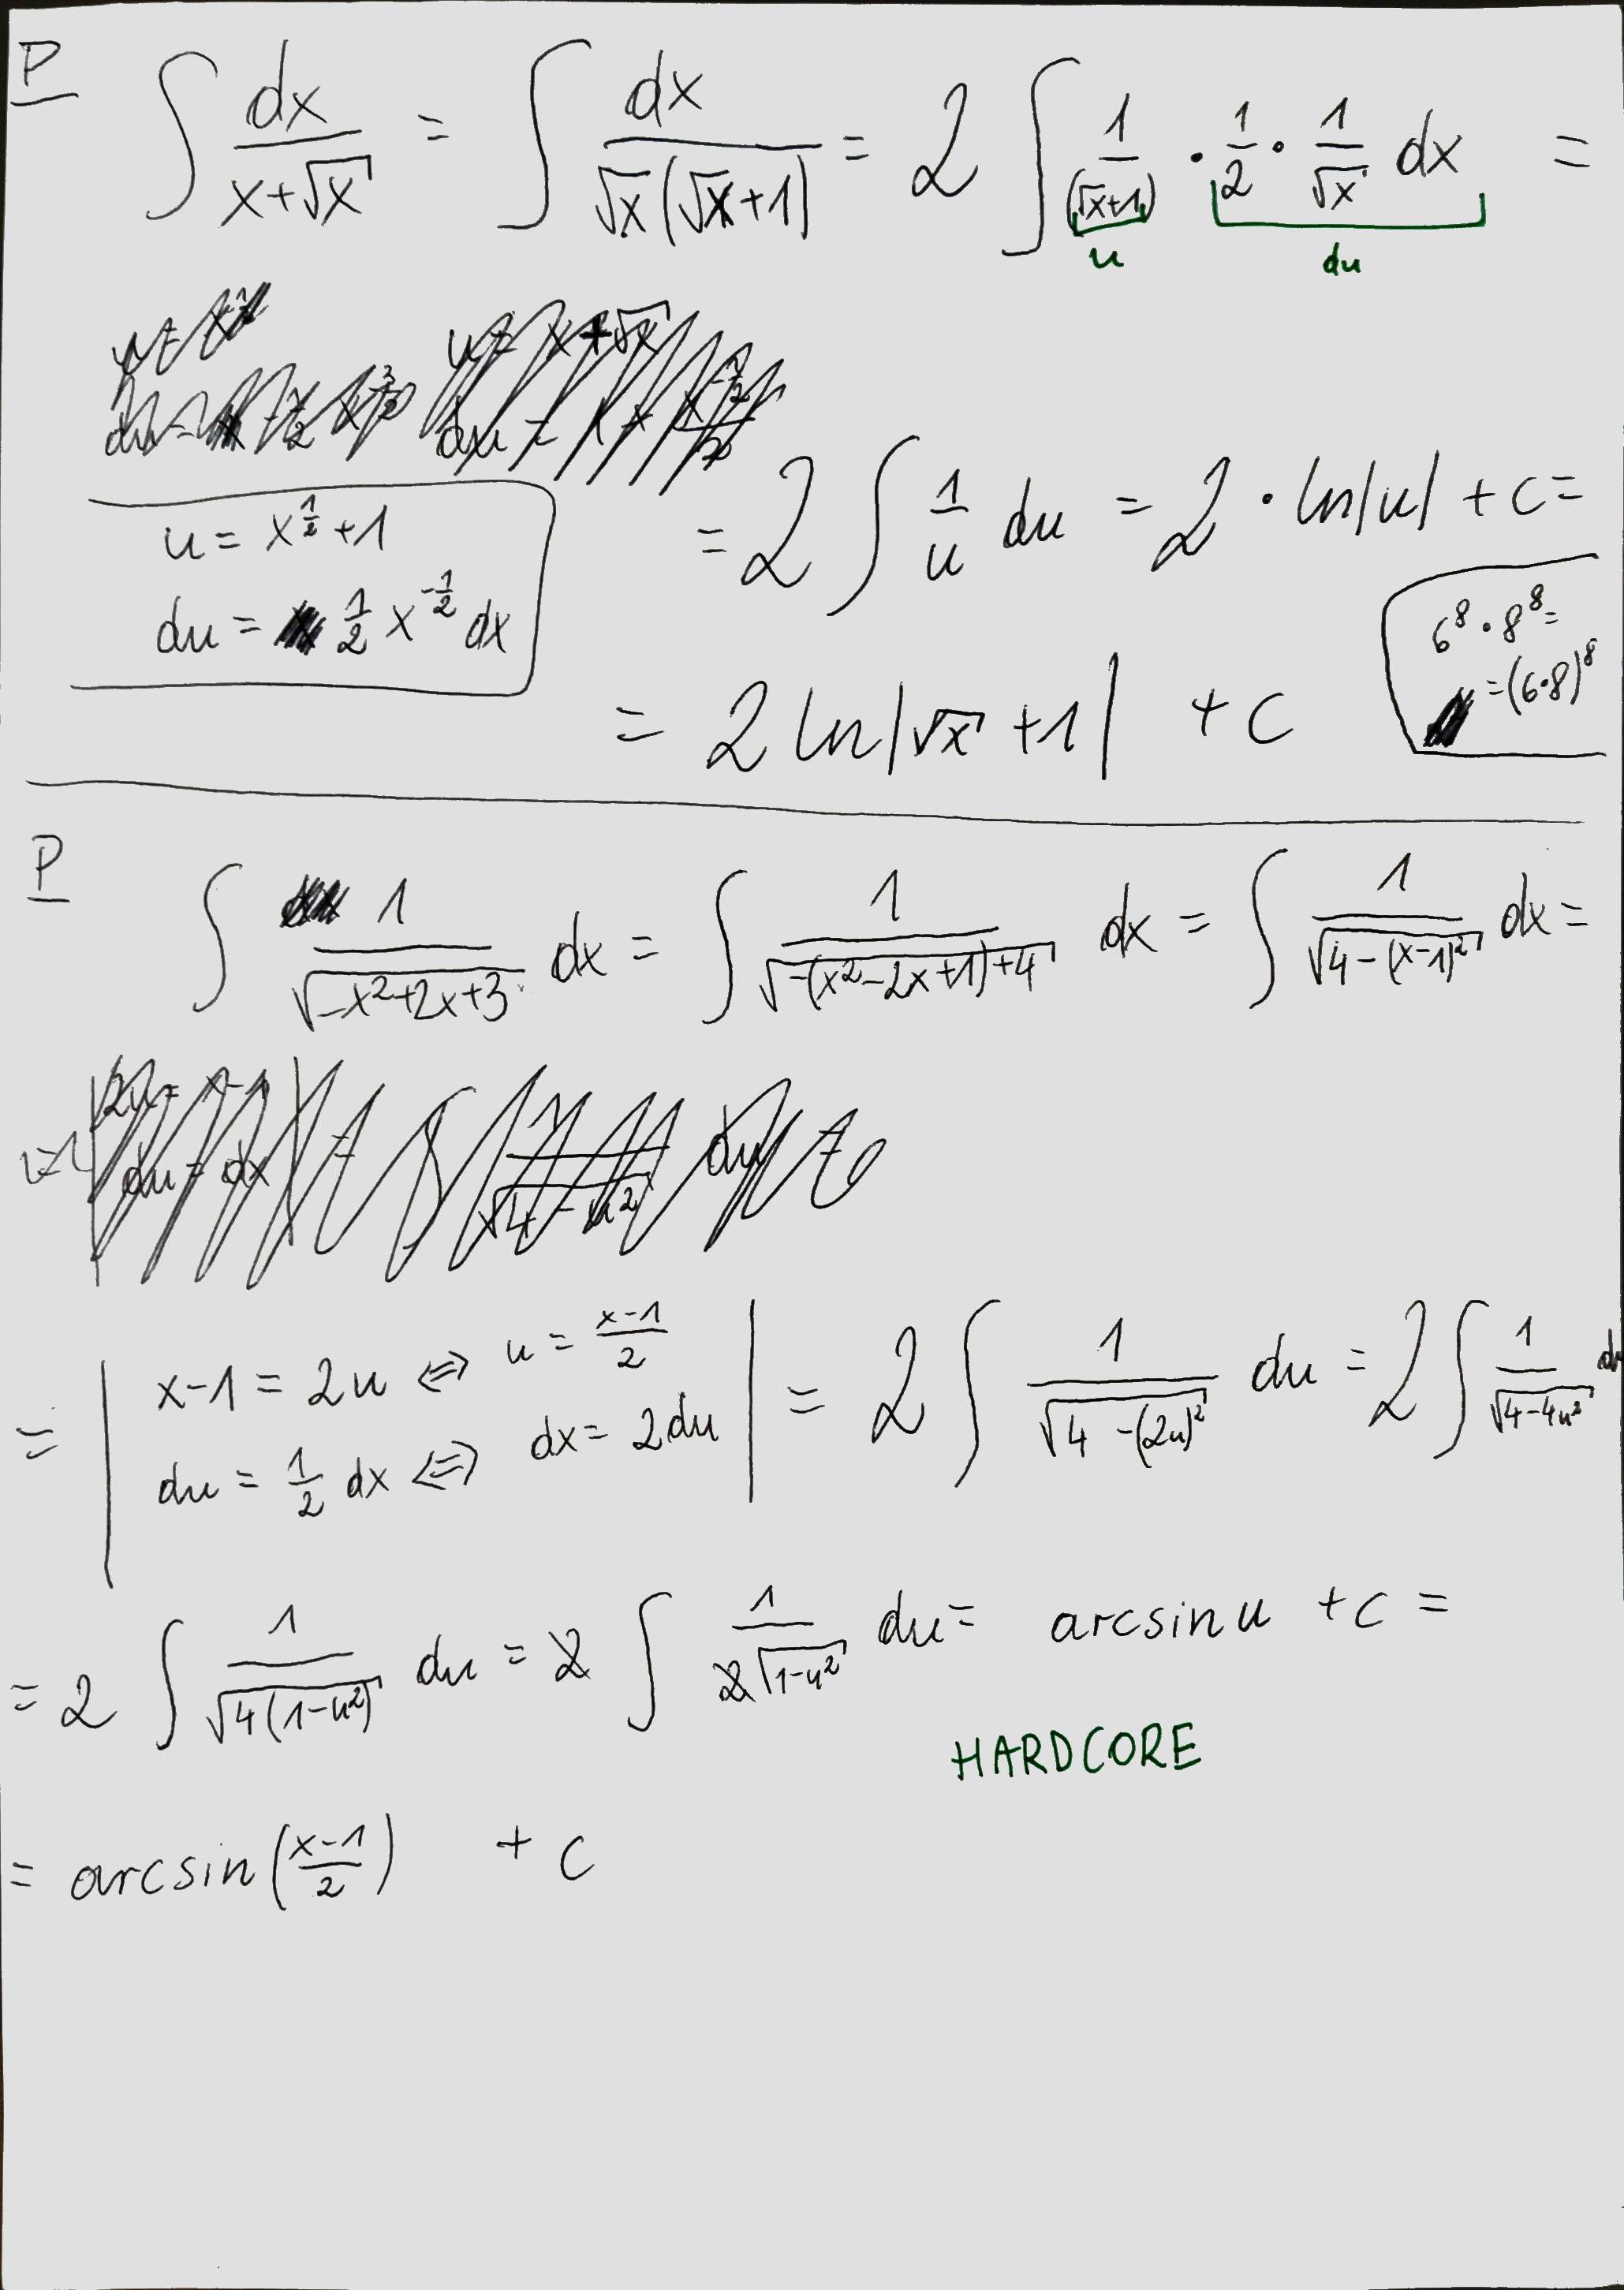 P
∫ dx/(x+√x) = ∫ dx/(√x(√x+1)) = 2 ∫ 1/(√x+1) · 1/2 · 1/√x dx =
u du
u = x^(1/2) + 1
du = 1/2 x^(-1/2) dx
= 2 ∫ 1/u du = 2 · ln|u| + c =
6^8 · 8^8 =
= (6·8)^8
= 2 ln|√x + 1| + c
P
∫ 1/√(-x²+2x+3) dx = ∫ 1/√(-(x²-2x+1)+4) dx = ∫ 1/√(4-(x-1)²) dx =
= | x-1 = 2u ⇔ u = (x-1)/2
du = 1/2 dx ⇔ dx = 2du | = 2 ∫ 1/√(4-(2u)²) du = 2 ∫ 1/√(4-4u²) du
= 2 ∫ 1/√(4(1-u²)) du = 2 ∫ 1/(2√(1-u²)) du = arcsin u + c =
HARDCORE
= arcsin((x-1)/2) + c